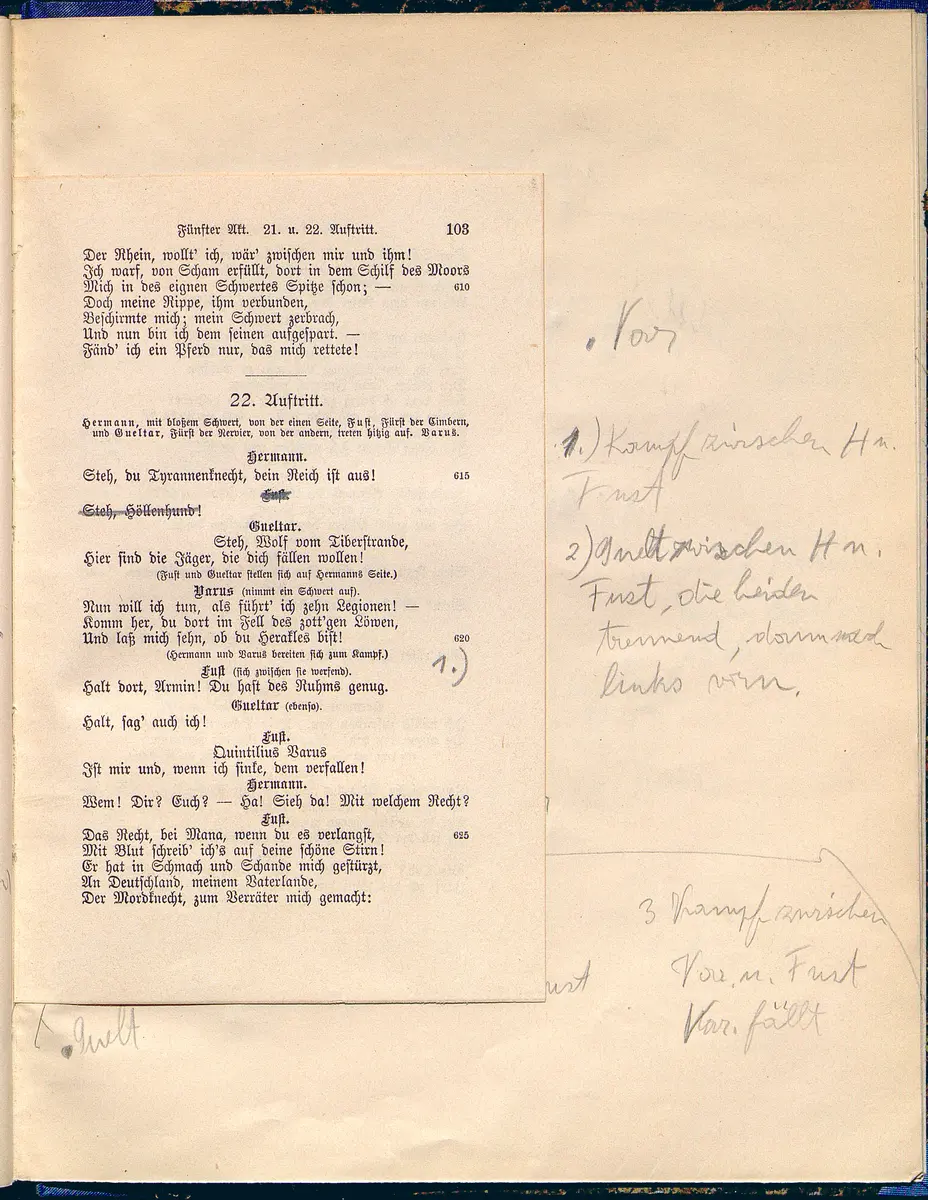 Fünfter Akt. 21. u. 22. Auftritt. 103
Der Rhein, wollt' ich, wär' zwischen mir und ihm!
Ich warf, von Scham erfüllt, dort in dem Schilf des Moors
Mich in des eignen Schwertes Spitze schon; — 610
Doch meine Rippe, ihm verbunden,
Beschirmte mich; mein Schwert zerbrach,
Und nun bin ich dem seinen aufgespart. —
Fänd' ich ein Pferd nur, das mich rettete!
22. Auftritt.
Hermann, mit bloßem Schwert, von der einen Seite, Fust, Fürst der Cimbern,
und Gueltar, Fürst der Nervier, von der andern, treten hitzig auf. Varus.
Hermann.
Steh, du Tyrannenknecht, dein Reich ist aus! 615
Fust.
Steh, Höllenhund!
Gueltar.
Steh, Wolf vom Tiberstrande,
Hier sind die Jäger, die dich fällen wollen!
(Fust und Gueltar stellen sich auf Hermanns Seite.)
Varus (nimmt ein Schwert auf).
Nun will ich tun, als führt' ich zehn Legionen! —
Komm her, du dort im Fell des zott'gen Löwen,
Und laß mich sehn, ob du Herakles bist! 620
(Hermann und Varus bereiten sich zum Kampf.)
Fust (sich zwischen sie werfend).
1.)
Halt dort, Armin! Du hast des Ruhms genug.
Gueltar (ebenso).
Halt, sag' auch ich!
Fust.
Quintilius Varus
Ist mir und, wenn ich sinke, dem verfallen!
Hermann.
Wem! Dir? Euch? — Ha! Sieh da! Mit welchem Recht?
Fust.
Das Recht, bei Mana, wenn du es verlangst, 625
Mit Blut schreib' ich's auf deine schöne Stirn!
Er hat in Schmach und Schande mich gestürzt,
An Deutschland, meinem Vaterlande,
Der Mordknecht, zum Verräter mich gemacht:
. Var
1.) Kampf zwischen H u.
Fust
2) Guelt zwischen H u.
Fust, die beiden
trennend, dann nach
links vorn.
3 Kampf zwischen
Var. u. Fust
Var. fällt
ust
. Guelt